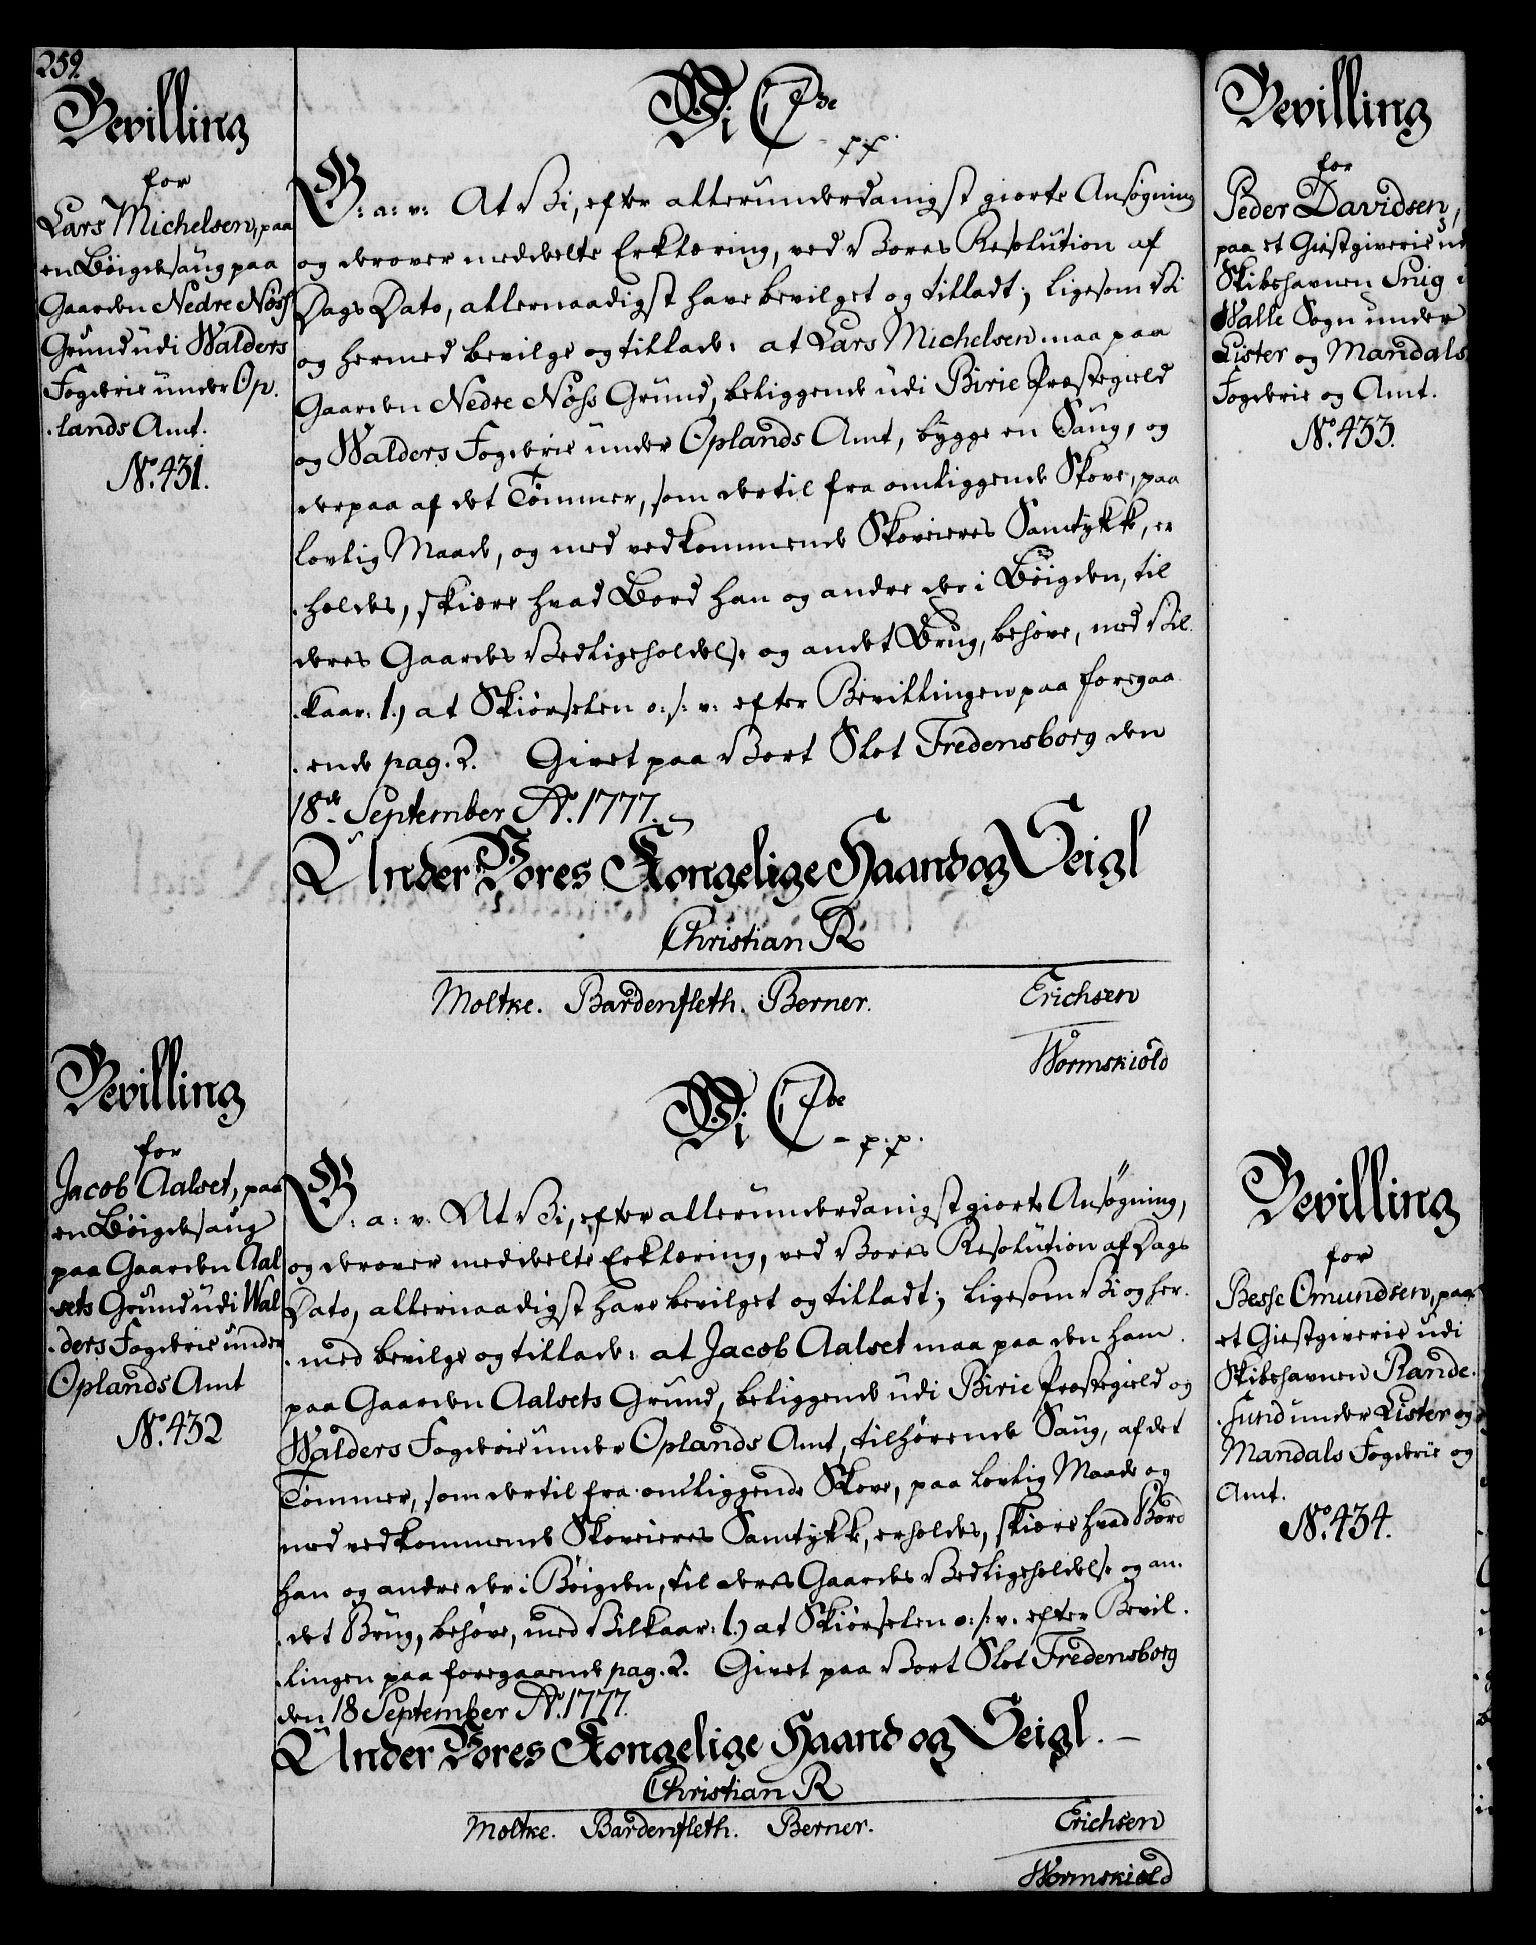 259.
Bevilling
for
Lars Michelsen, paa
en Böigdesaug paa
Gaarden Nedre Nöss
Grund udi Walders
Fogderie under Op-
-lands Amt.
No. 431.
Vi C 7de
pp.
G: a: v: At Vi, efter allerunderdanigst giorte Ansøgning
og derover meddeelte Erklæring, ved Vores Resolution af
Dags Dato, allernaadigst have bevilget og tilladt; ligesom Vi
og hermed bevilge og tillade: at Lars Michelsen maa paa
Gaarden Nedre Nöss Grund, beliggende udi Birie Præstegield
og Walders Fogderie under Oplands Amt, bygge en Saug, og
derpaa af det Tømmer, som dertil fra omliggende Skove, paa
lovlig Maade, og med vedkommende Skoveieres Samtykke, er-
-holdes, skiære hvad Bord han og andre der i Böigden, til
deres Gaardes Vedligeholdelse og andet Brug, behøve, med Vil-
-kaar: 1.) at Skiørselen o: s: v: efter Bevillingen paa foregaa-
-ende pag. 2. Givet paa Vort Slot Fredensborg den
18de September Ao. 1777.
Under Vores Kongelige Haand og Seigl
Christian R
Moltke. Bardenfleth. Berner. Erichsen
Wormskiold
Bevilling
for
Jacob Aalset, paa
en Böigdesaug
paa Gaarden Aal-
sets Grund udi Wal-
-ders Fogderie under
Oplands Amt
No. 432
Vi C 7de
- p.p.
G: a: v: At Vi, efter allerunderdanigst giorte Ansøgning,
og derover meddeelte Erklæring, ved Vores Resolution af Dags
Dato, allernaadigst have bevilget og tilladt; ligesom Vi og her-
-med bevilge og tillade: at Jacob Aalset maa paa den ham
paa Gaarden Aalsets Grund, beliggende udi Birie Præstegield og
Walders Fogderie under Oplands Amt, tilhørende Saug, af det
Tømmer, som dertil fra omliggende Skove, paa lovlig Maade og
med vedkommende Skoveieres Samtykke, erholdes, skiære hvad Bord
han og andre der i Böigden, til deres Gaardes Vedligeholdelse og an-
-det Brug, behøve, med Vilkaar: 1.) at Skiørselen o: s: v: efter Bevil-
-lingen paa foregaaende pag. 2. Givet paa Vort Slot Fredensborg
den 18 September Ao. 1777.
Under Vores Kongelige Haand og Seigl.
Christian R
Moltke. Bardenfleth. Berner. Erichsen
Wormskiold
Bevilling
for
Peder Davidsen,
paa et Giestgiverie ud
Skibshavnen Snig i
Walle Sogn under
Lister og Mandals
Fogderie og Amt.
No. 433.
Bevilling
for
Besse Omundsen, paa
et Giestgiverie udi
Skibshavnen Rande-
-sund under Lister og
Mandals Fogderie og
Amt.
No. 434.